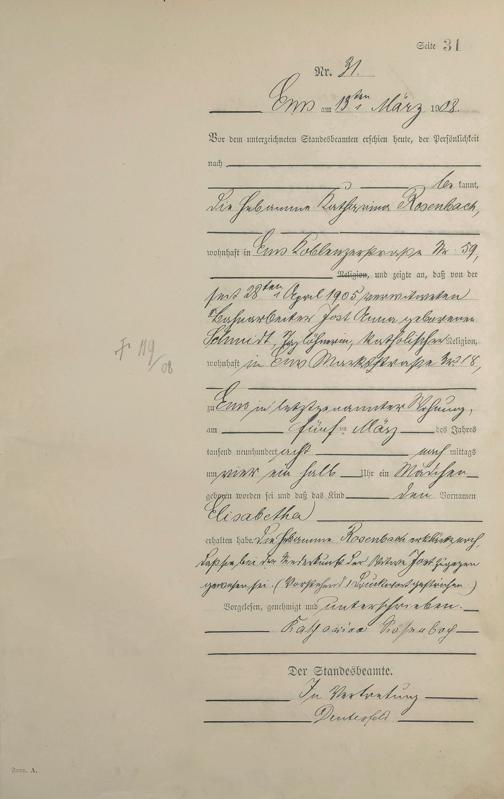 Seite 31
Nr. 31.
Ems am 13ten März 1908.
Vor dem unterzeichneten Standesbeamten erschien heute, der Persönlichkeit
nach
be kannt,
die Hebamme Katharina Rosenbach,
wohnhaft in Ems Koblenzerstraße Nr 59,
Religion, und zeigte an, daß von der
seit 28ten April 1905 verwitweten
Bahnarbeiter Jost Anna geborenen
Schmidt, Taglöhnerin, katholischer Religion,
wohnhaft in Ems Marktstraße Nr 18,
zu Ems in letztgenannter Wohnung,
am fünften März des Jahres
tausend neunhundert acht nach mittags
um vier ein halb Uhr ein Mädchen
geboren worden sei und daß das Kind den Vornamen
Elisabetha
erhalten habe. Die Hebamme Rosenbach erklärte noch,
daß sie bei der Niederkunft der Witwe Jost zugegen
gewesen sei. (Vorstehend 1 Druckwort gestrichen)
Vorgelesen, genehmigt und unterschrieben.
Katharina Rosenbach
Der Standesbeamte.
In Vertretung
Form. A.
119
08